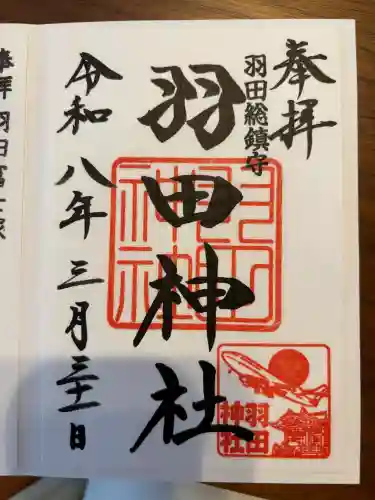 奉拝
羽田総鎮守
羽田神社
令和八年三月三十一日
羽田
神社
羽田
神社
奉拝羽田富士塚